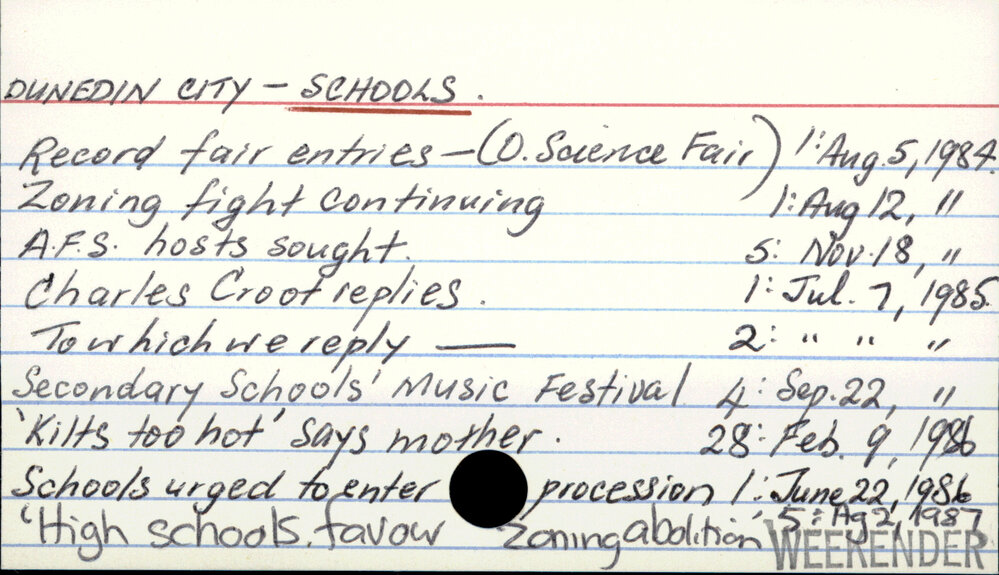 DUNEDIN CITY - SCHOOLS.
Record fair entries - (O. Science Fair) 1: Aug. 5, 1984.
Zoning fight continuing 1: Aug 12, "
A.F.S. hosts sought. 5: Nov. 18, "
Charles Croot replies. 1: Jul. 7, 1985.
To which we reply — 2: " " "
Secondary Schools' Music Festival 4: Sep. 22, "
'Kilts too hot' says mother. 28: Feb. 9, 1986
Schools urged to enter procession 1: June 22, 1986
'High schools favour zoning abolition' 5: Ag 2, 1987
WEEKENDER